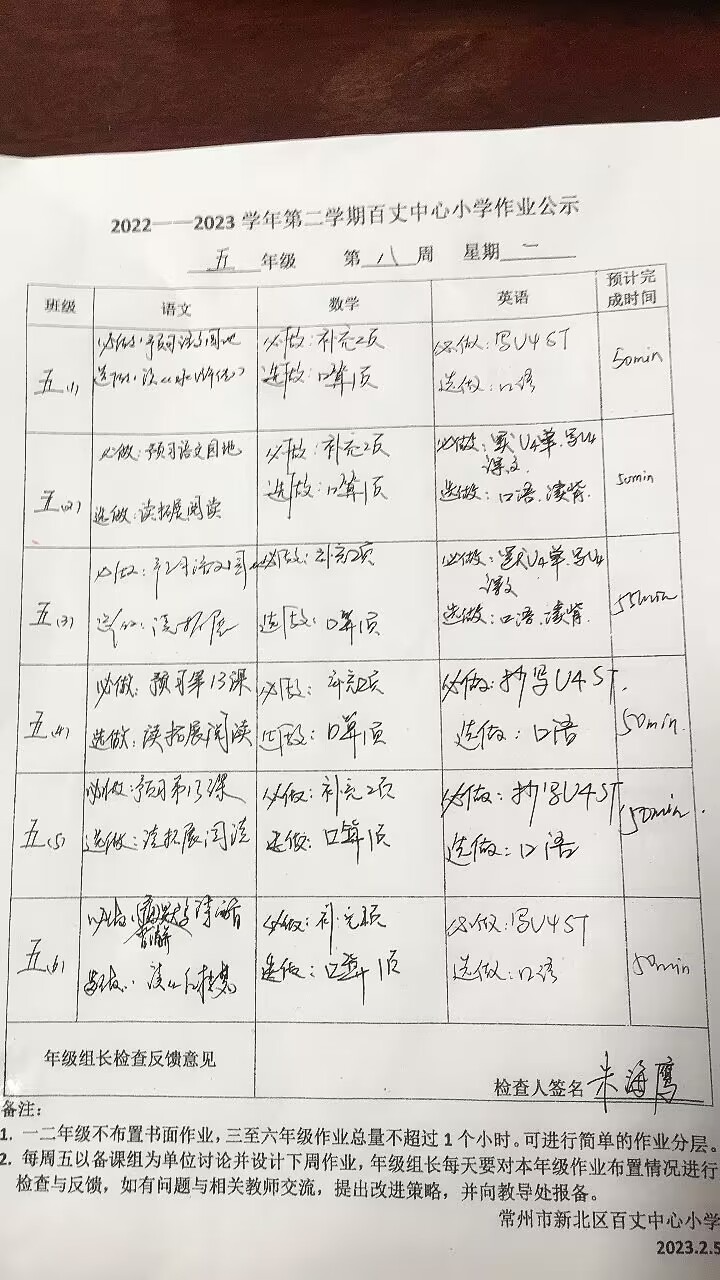 2022——2023 学年第二学期百丈中心小学作业公示
五 年级 第 八 周 星期 一
班级 语文 数学 英语 预计完成时间
五(1)
必做:预习语文园地 必做:补充2页 必做:写U4 ST
选做:读《水浒传》 选做:口算1页 选做:口语
50min
五(2)
必做:预习语文园地 必做:补充2页 必做:默U4单.写U4课文
选做:读拓展阅读 选做:口算1页 选做:口语.读背.
50min
五(3)
必做:预习语文园地 必做:补充2页 必做:默U4单.写U4课文
选做:读拓展 选做:口算1页 选做:口语.读背.
55min
五(4)
必做:预习第13课 必做:补充2页 必做:抄写U4 ST.
选做:读拓展阅读 选做:口算1页 选做:口语
50min.
五(5)
必做:预习第13课 必做:补充2页 必做:抄写U4 ST
选做:读拓展阅读 选做:口算1页 选做:口语
50min.
五(6)
必做: 必做:补充2页 必做:写U4 ST
选做:读《红楼梦》 选做:口算1页 选做:口语
50min
年级组长检查反馈意见
检查人签名 朱海鹰
备注:
1. 一二年级不布置书面作业,三至六年级作业总量不超过 1 个小时。可进行简单的作业分层。
2. 每周五以备课组为单位讨论并设计下周作业,年级组长每天要对本年级作业布置情况进行
检查与反馈,如有问题与相关教师交流,提出改进策略,并向教导处报备。
常州市新北区百丈中心小学
2023.2.5